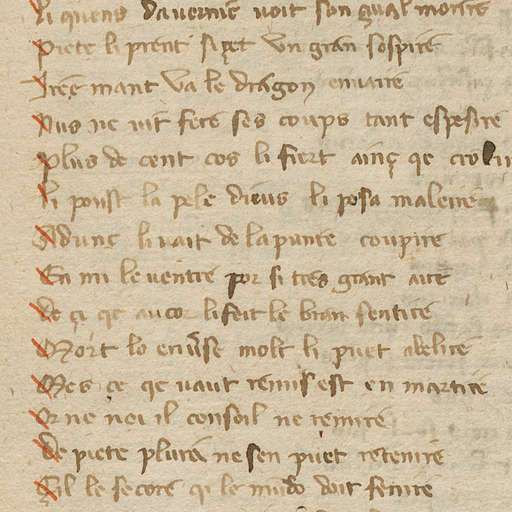 li quens dauernie uoit son gual morire
Piete li prent si get un gran sospire
Iree mant ua le dragon enuaire
Nus ne uit fere ses coups tant espesire
Plus de cent cos li fiert ainç qe
li poust la pele dieus li posa maleire
Adunc li uait de la punte coupire
En mi le uentre por si tres grant aire
De çi qe au cor li feit le bran sentire
Mort lo enuerse molt li puet abelire
Mes ce qe uaut remis est en martire
Or ne uoi il consoil ne remire
De piete plura ne sen puet retenire
Cil le secore qe le mundo doit fenire